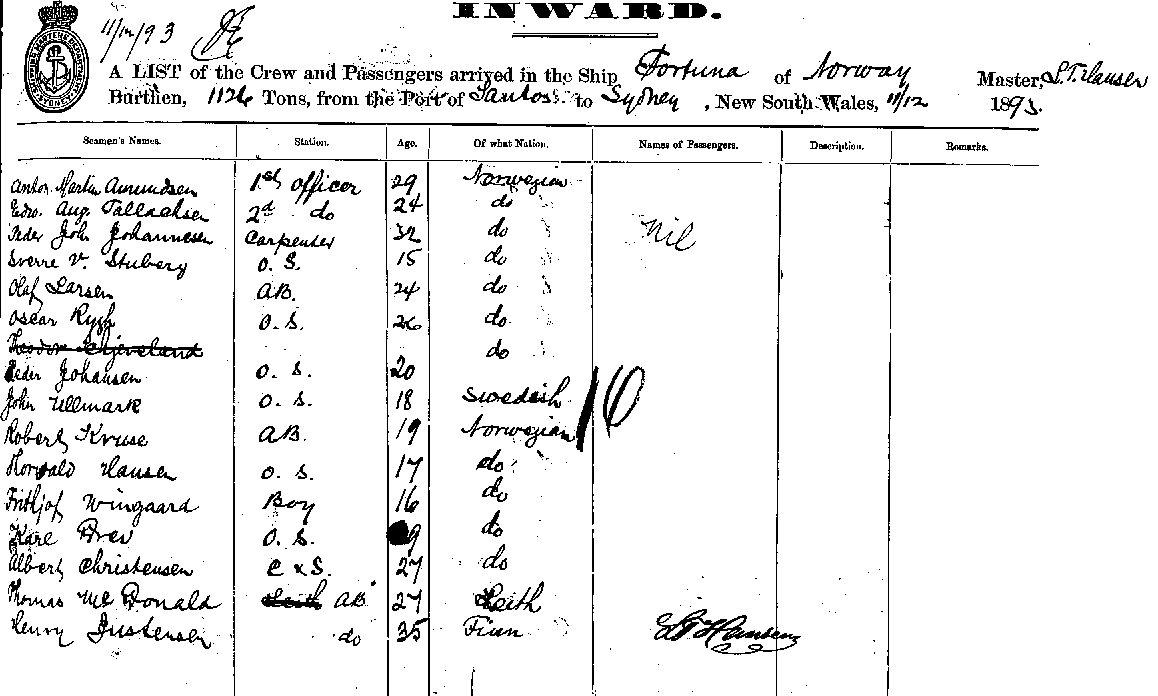 INWARD.
11/12/93
A LIST of the Crew and Passengers arrived in the Ship Fortuna of Norway Master, S.T. Hansen
Burthen, 1126 Tons, from the Port of Santos to Sydney, New South Wales, 11/12 1893.
Seamen's Names. Station. Age. Of what Nation. Names of Passengers. Description. Remarks.
Anton Martin Amundsen 1st officer 29 Norwegian
Edw. Aug. Tallachsen 2d do 24 do
Peder Joh Johannesen Carpenter 32 do Nil
Sverre V. Stuberg O.S. 15 do
Olaf Larsen AB. 24 do
Oscar Rygh O.S. 26 do
Theodor do
Peder Johansen O.S. 20
John Ullmark O.S. 18 Swedish
16
Robert Kruse AB. 19 Norwegian
Horwald Hansen O.S. 17 do
Frithjof Wingaard Boy 16 do
Kare O.S. 9 do
Albert Christensen C & S. 27 do
Thomas McDonald Leith AB 27 Leith
Henry Justensen do 35 Finn
S.T. Hansen